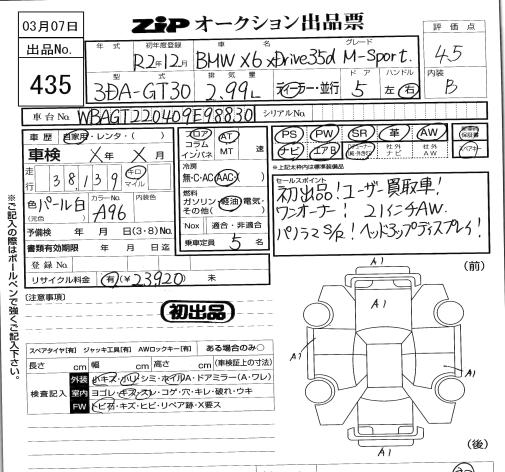 03月07日
ZiP オークション出品票
出品No.
435
年式 初年度登録 車名 グレード
R2年12月 BMW X6 xDrive35d M-Sport.
型式 排気量 ドア ハンドル
3DA-GT30 2.99L ディーラー・並行 5 左・右
評価点
4.5
内装
B
車台No. WBAGT220409E98830 シリアルNo.
車歴 自家用・レンタ・( )
車検 X年 X月
走行 38,139 キロ マイル
色 パール白 カラーNo. A96 内装色
(元色)
予備検 年 月 日(3・8)No.
書類有効期限 年 月 日迄
登録No.
リサイクル料金 有(¥23920) 未
フロア コラム インパネ AT MT 速
冷房
無・C・AC・AAC
燃料
ガソリン・軽油・電気・その他( )
Nox 適合・非適合
乗車定員 5 名
PS PW SR 革 AW
ナビ エアB 社外ナビ 社外AW
※上記太枠内は標準装備品
セールスポイント
初出品!ユーザー買取車!
ワンオーナー! 21インチAW.
パノラマS/R! ヘッドアップディスプレイ!
※ご記入の際はボールペンで強くご記入下さい。
[注意事項]
初出品
スペアタイヤ[有] ジャッキ工具[有] AWロックキー[有] ある場合のみ○
長さ cm 幅 cm 高さ cm (車検証上の寸法)
検査記入
外装 小キズ・小凹・シミ・ホイルA・ドアミラー(A・ワレ)
室内 ヨゴレ・キズ・スレ・コゲ・穴・キレ・破れ・ウキ
FW トビ石・キズ・ヒビ・リペア跡・X要ス
(前)
A1
A1
A1
A1
A1
(後)